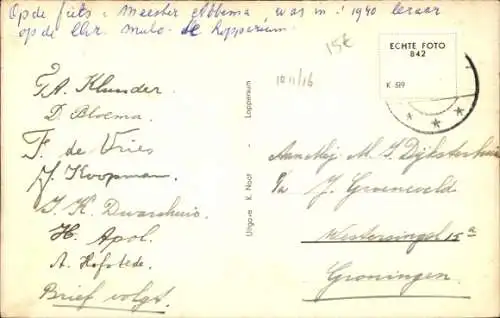 Op de fiets : Meester Abbema, was in ! 1940 leraar
op de Chr. Mulo - te Loppersum
15€
ECHTE FOTO
842
K 519
10 11/16
T. A. Klunder
D. Bloema
F. de Vries
J. Koopman
J. K. Dwarshuis
H. Apol.
A. Hofstede.
Brief volgt.
Uitgave K. Noot - Loppersum
Aan Mej. M. J. Dijksterhuis
p/a J. Groeneveld
Westersingel 15a
Groningen.